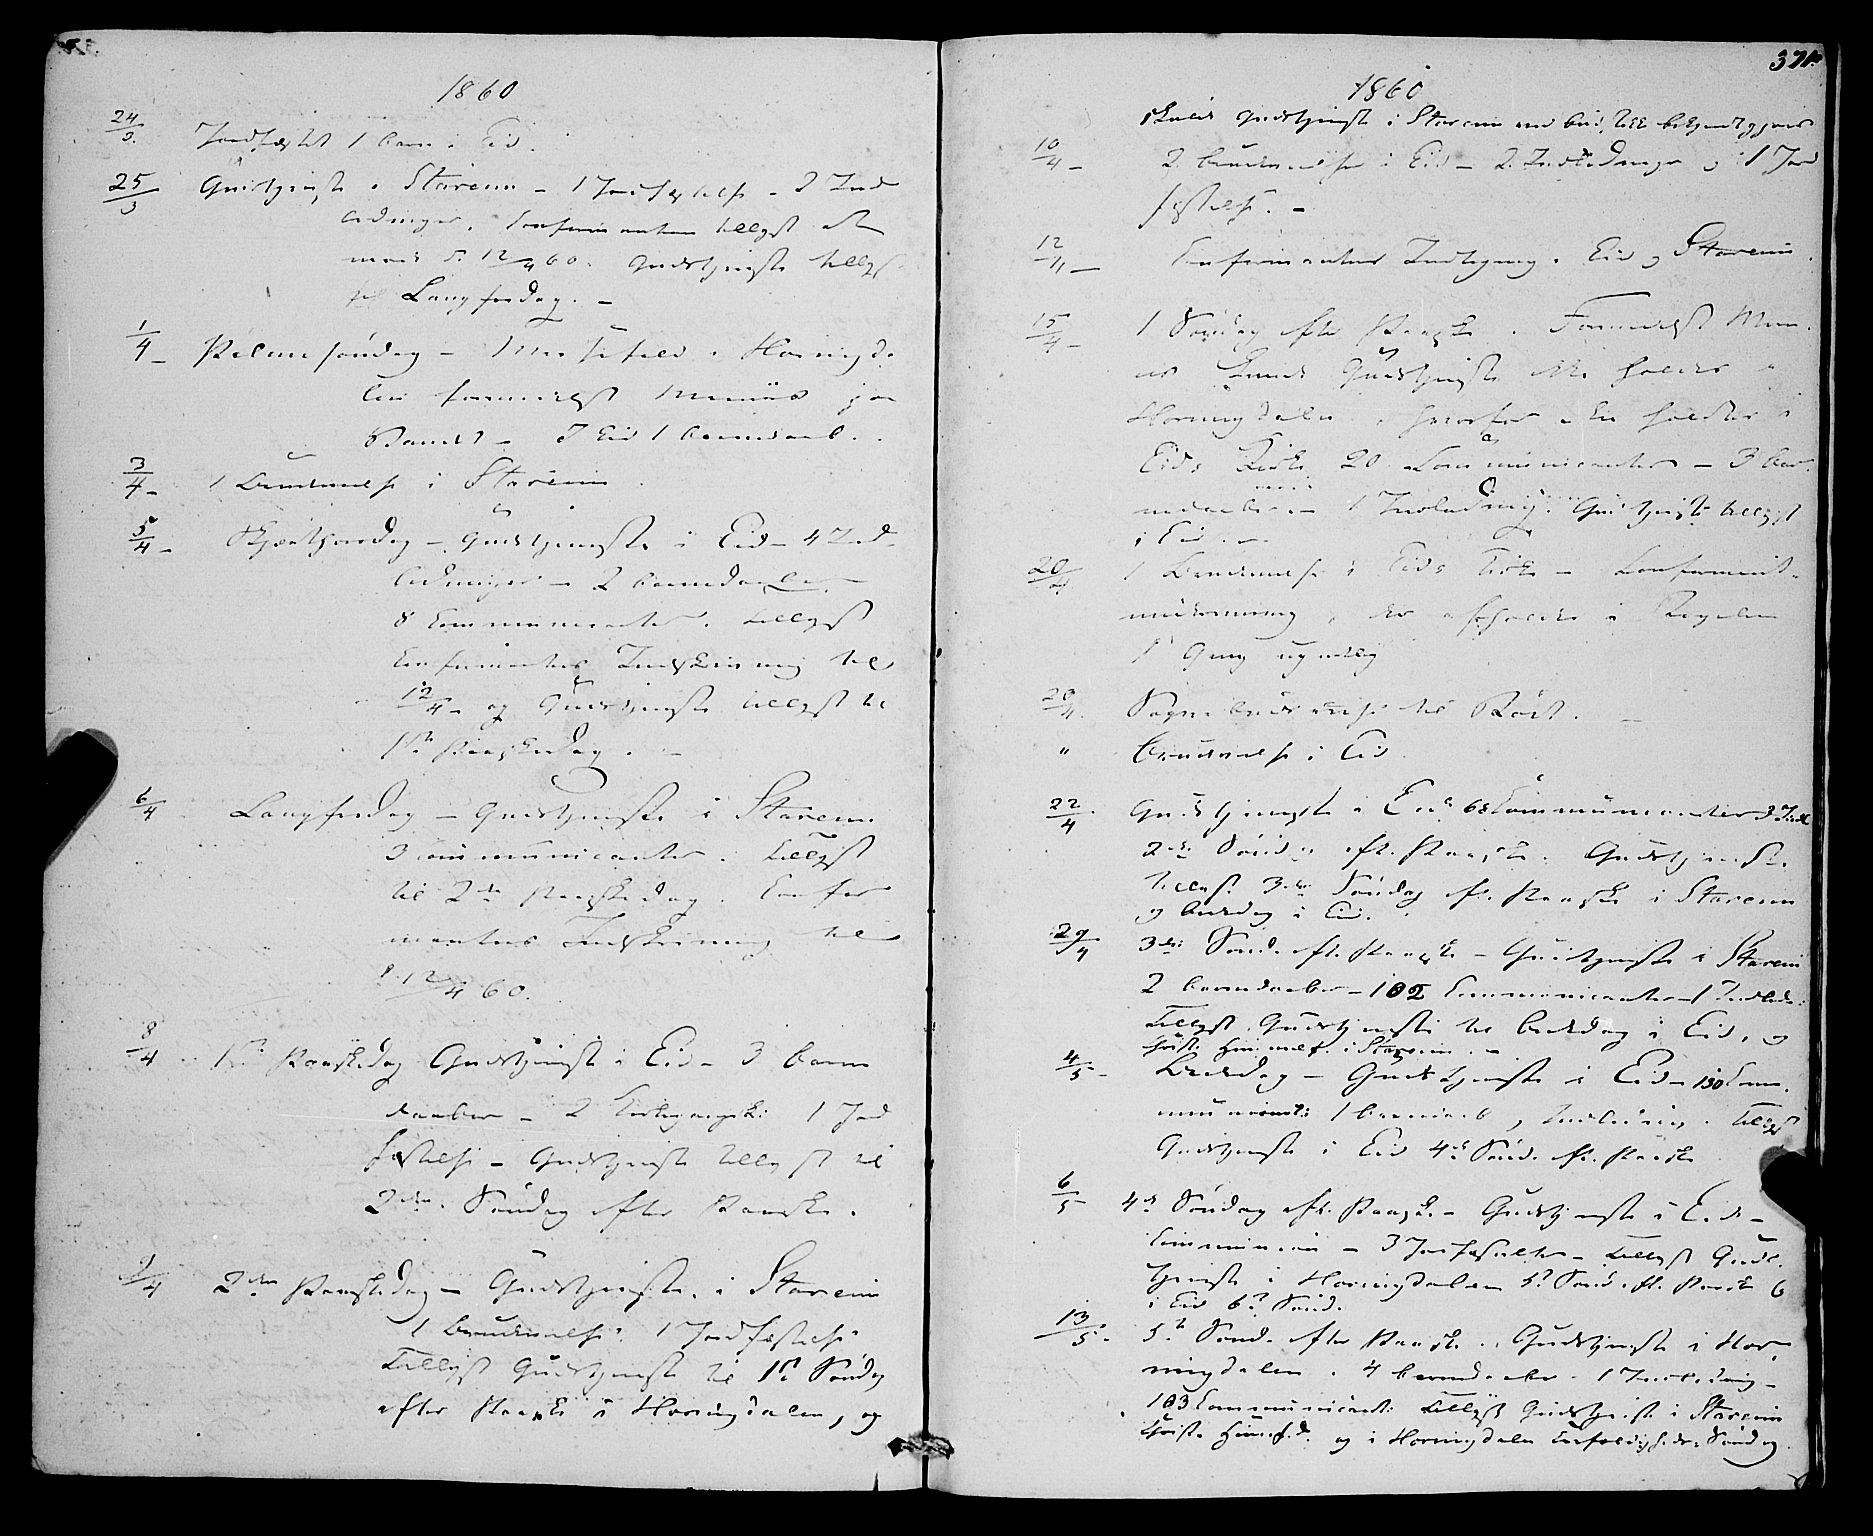 1860
24/3. Jordfæstet 1 barn i Eid.
25/3 Gudstjeneste i Starem – 1 Jordfæstelse – 2 Ind
ledninger. Confirmanterne tillyst at
møde d. 12/4 60. Gudstjeneste tillyst
til Langfredag. –
1/4 – Palmesøndag – Messefald i Hornigda
len formedelst Menuis paa
Vandet – I Eid 1 barnedaab.
3/4 – 1 Brudevielse i Starem
5/4 – Skjærthorsdag – Gudstjeneste i Eid – 4 Ind
ledninger – 2 barnedaabe –
8 Communicanter. Tillyst
Confirmanternes Indskrivning til
12/4 – og Gudstjeneste tillyst til
1ste Paaskedag. –
6/4 Langfredag – Gudstjeneste i Starem
3 Communicanter. Tillyst
til 2den Paaskedag. Confir
manternes Indskrivning til
d. 12/4 60.
8/4 1ste Paaskedag Gudstjeneste i Eid – 3 barne
daaber – 2 1 Jord
fæstelse – Gudstjeneste tillyst til
2den Søndag efter Paaske.
9/4 2den Paaskedag – Gudstjeneste i Starem
1 Brudevielse. 1 Jordfæstelse
Tillyst Gudstjeneste til 1ste Søndag
efter Paaske i Hornigdalen, og
371.
1860
Gudstjeneste i Starem ved bud, blev bekjendtgjort
10/4 – 2 brudevielser i Eid – 2 Indledninger og 1 Jord
fæstelse. –
12/4 – Confirmanternes Indtegning i Eid og Starem.
15/4 – 1 Søndag efter Paaske. Formedelst Men
uis kunde Gudstjeneste ikke holdes i
Hornigdalen, hvorfor den holdtes i
Eids Kirke 20 Communicanter – 3 bar
nedaaber – 1 Indledning. Gudstjeneste tillyst
i Eid. –
20/4 1 Brudevielse i Eids Kirke – Confirmant
underviisning, der afholdes i Regelen
1 Gang ugentlig
20/4. Sognebudsreise til
" Brudevielse i Eid.
22/4 Gudstjeneste i Eid 68 Communicanter 3 Indl
2den Søndag eft. Paaske. Gudstjeneste
tillyst 3die Søndag eft. Paaske i Starem
og bededag i Eid.
29/4 3die Sønd. eft. Paaske – Gudstjeneste i Starem
2 barnedaaber – 102 Communicanter – 1 Indledn.
Tillyst Gudstjeneste til bededag i Eid, og
Christi Himmelf. i Starem. –
4/5 – Bededag – Gudstjeneste i Eid – 130 Com
municant: 1 barnedaab, Indledning. Tillyst
Gudstjeneste i Eid 4de Sønd. eft. Paaske
6/5 – 4de Søndag eft. Paaske – Gudstjeneste i Eid –
Communion – 3 Jordfæstelser – Tillyst Guds
tjeneste i Hornigdalen 5te Sønd. eft. Paaske &
i Eid 6te Sønd.
13/5 – 5te Sønd. efter Paaske. Gudstjeneste i Hor
nigdalen. 4 barnedaaber – 1 Indledning –
103 Communicant: Tillyst Gudstjeneste i Starem
Christi Himmelf.d. og i Hornigdalen Trefoldigheds Søndag.